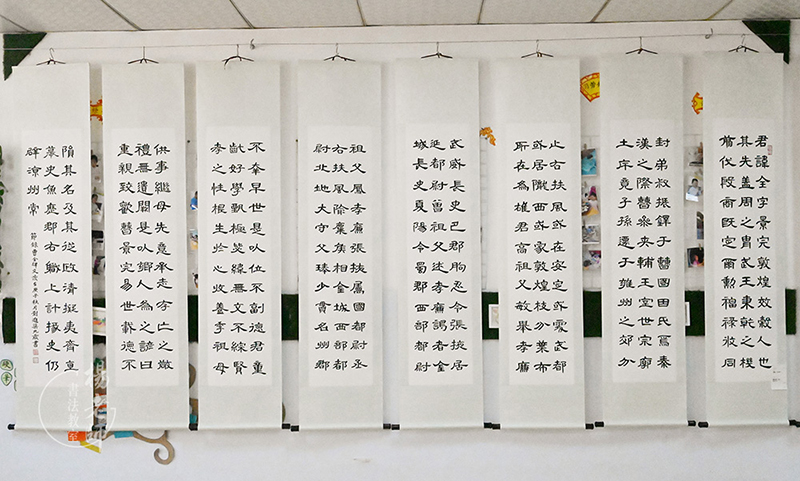 君諱全字景完敦煌效穀人也
其先蓋周之冑武王秉乾之機
翦伐殷商既定爾勳福祿攸同
封弟叔振鐸于曹國因氏焉秦
漢之際曹參夾輔王室世宗廓
土斥竟子孫遷于雍州之郊分
止右扶風或在安定或處武都
或居隴西或家敦煌枝分葉布
所在為雄君高祖父敏舉孝廉
武威長史巴郡朐忍令張掖居
延都尉曾祖父述孝廉謁者金
城長史夏陽令蜀郡西部都尉
祖父鳳孝廉張掖屬國都尉丞
右扶風隃麋侯相金城西部都
尉北地大守父琫少貫名州郡
不幸早世是以位不副德君童
齔好學甄極毖緯無文不綜賢
孝之性根生於心收養季祖母
供事繼母先意承志存亡之敬
禮無遺闕是以鄉人為之諺曰
重親致歡曹景完易世載德不
隕其名及其從政清擬夷齊直
慕史魚歷郡右職上計掾史仍
辟涼州常
節錄曹全碑文庚子秋月書